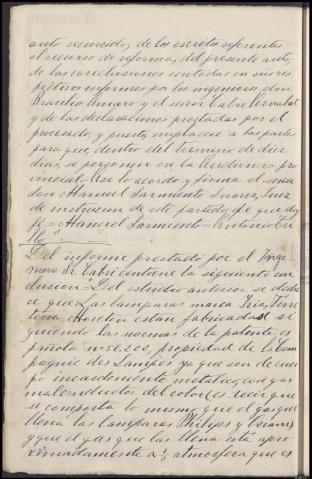 auto recurrido, de los escritos referentes
al recurso de reforma, del presente auto,
de las conclusiones sentadas en sus res
pectivos informes por los ingenieros don
Braulio Amaro y el señor Cabré
y de las declaraciones prestadas por el
procesado, y puesto, emplacese a las partes
para que dentro del termino de diez
dias, se personen en la Audiencia pro
vincial = Asi lo acordo y firma el señor
don Manuel Sarmiento Suarez, Juez
de instruccion de este partido, de que doy
fe = Manuel Sarmiento = Antonio
Del informe prestado por el Inge
niero Sr. Cabré contiene la siguiente con
clusion = Del estudio anterior se dedu
ce que las lamparas marca Iris,
están fabricadas si
guiendo las normas de la patente es
pañola nº 56,202, propiedad de la Com
pagnie des Lampes ya que son de cuer
po incandescente metalico, con gas
mal conductor del calor (es decir que
se comporta lo mismo que el gas que
llena las lamparas Philips y Osram)
y que el gas que las llena esta apro
ximadamente a ½ atmosfera que es